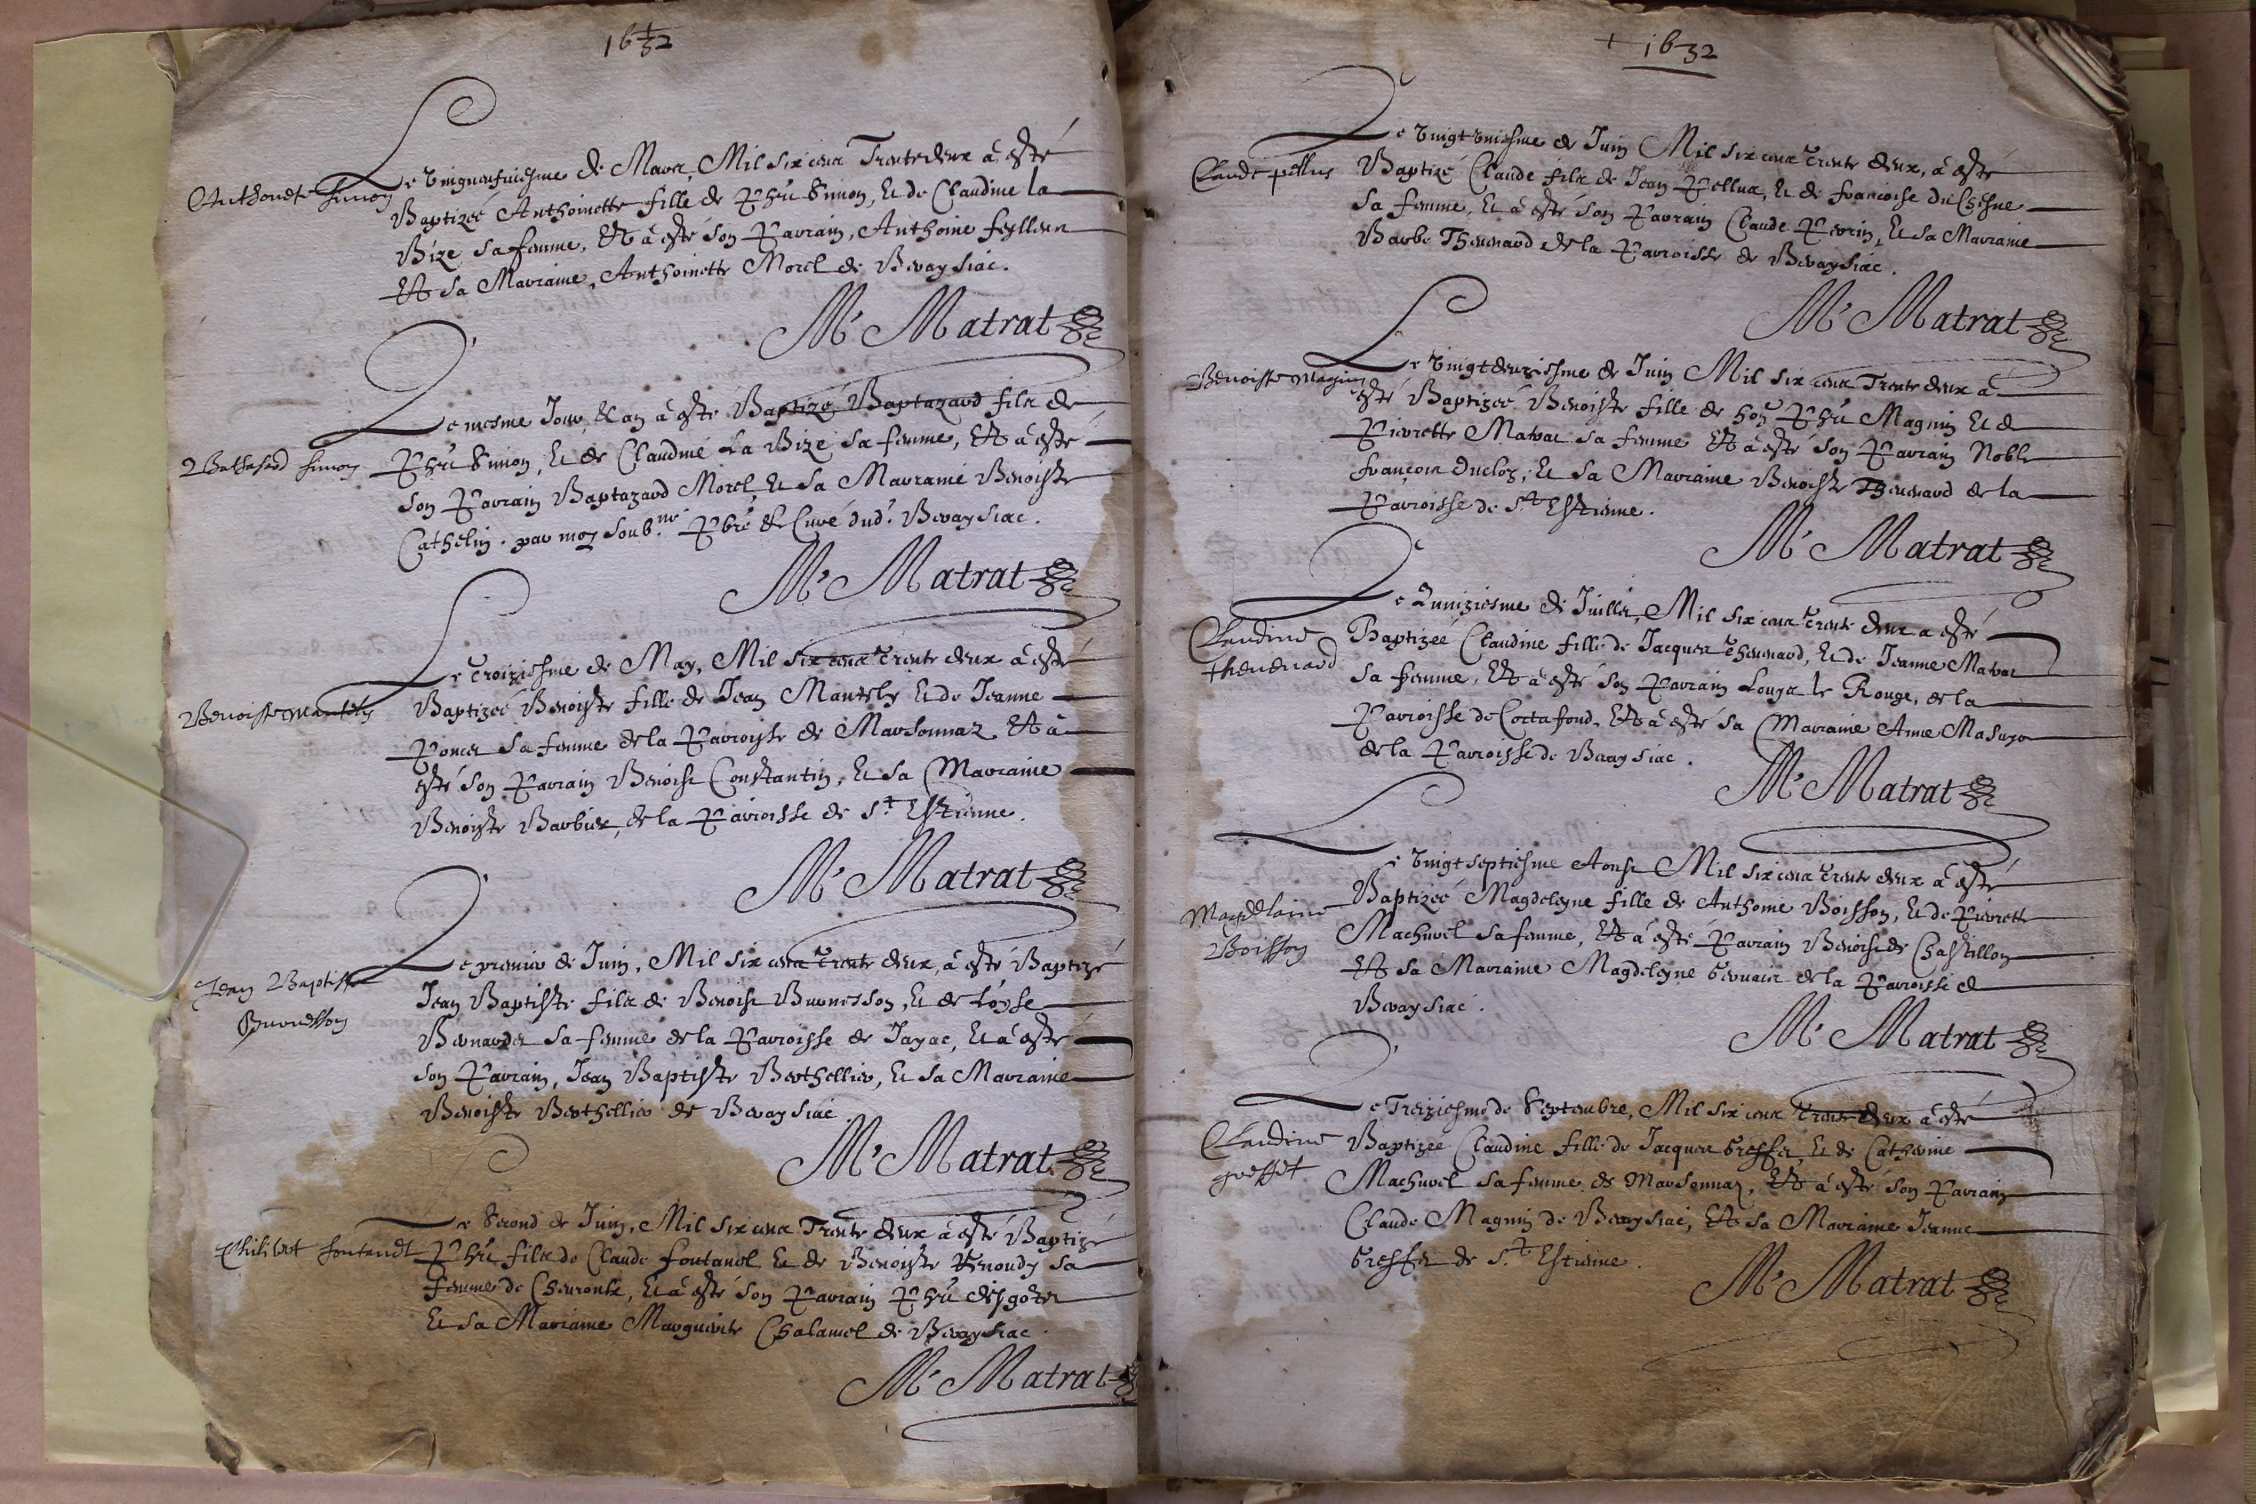 1632
Le vingneufuiesme de Mars, Mil six cens Trente deux à esté
Anthonete Simon
Baptizeé Anthoinette fille de Phũ Simon, Et de Claudine la
Bize sa femme, Et à esté son Parrain, Anthoine
Et sa Marraine, Anthoinette Morel de Bevaysiac.
M. Matrat
Le mesme Jour, & an à esté Baptizé, Baptazard filz de
Balthasard Simon
Phũ Simon, Et de Claudine La Bize sa femme, Et à esté
son Parrain Baptazard Morel, Et sa Marraine Benoiste
Cathelin. par moy soubne. Pbre & Curé dud. Bevaysiac.
M. Matrat
Le Troiziesme de May, Mil six cens Trente deux à esté
Benoiste Mantely
Baptizeé Benoiste fille de Jean Mantely Et de Jeanne
Poncet sa femme de la Parroisse de Marsonnaz Et à
esté son Parrain Benoist Constantin, Et sa Marraine
Benoiste Barbier, de la Parroisse de St Estienne.
M. Matrat
Le premier de Juin, Mil six cens Trente deux, à esté Baptizé
Jean Baptiste
Jean Baptiste filz de Benoist Buvresson, Et de Loyse
Buvresson
Bernardet sa femme de la Parroisse de Jayac, Et à esté
son Parrain, Jean Baptiste Berthellier, Et sa Marraine
Benoiste Berthellier de Bevaysiac
M. Matrat
Le Second de Juin, Mil six cens Trente deux à esté Baptizé
Philibert fontanel
Phũ filz de Claude fontanel Et de Benoiste Renoudy sa
femme de Chevroulx, Et à esté son Parrain Phũ desgoutes
Et sa Marraine Marguerite Chalamel de Bevaysiac.
M. Matrat
+ 1632
Le vingt vniesme de Juin Mil six cens Trente deux, à esté
Claude pellus
Baptizé Claude filz de Jean Pellux, Et de francoise du Chesne
sa femme, Et à esté son Parrain Claude Perrin, Et sa Marraine
Barbe Thenenard de la Parroisse de Bevaysiac.
M. Matrat
Le vingtdeuziesme de Juin Mil six cens Trente deux à
Benoiste Magnin
esté Baptizeé Benoiste fille de hon Phũ Magnin Et de
Pierrette Matrat sa femme Et à esté son Parrain Noble
françois Duclos, Et sa Marraine Benoiste Thenenard de la
Parroisse de St Estienne.
M. Matrat
Le Quinziesme de Juillet, Mil six cens Trente deux a esté
Claudine
Baptizeé Claudine fille de Jacques Thenenard, Et de Jeanne Matrat
thenenard
sa femme, Et à esté son Parrain Louys le Rouge, de la
Parroisse de Cortafond, Et à esté sa Marraine Anne Masuyer
de la Parroisse de Bevaysiac.
M. Matrat
Le vingt septiesme Aoust Mil six cens Trente deux à esté
Magdelaine
Baptizeé Magdeleyne fille de Anthoine Boisson, Et de Pierrette
Boisson
Machurel sa femme, Et à esté Parrain Benoist de Chastillon
Et sa Marraine Magdeleyne Gervais de la Parroisse de
Bevaysiac.
M. Matrat
Le Treiziesme de Septembre, Mil six cens Trente deux à esté
Claudine
Baptizeé Claudine fille de Jacques Greffet, Et de Catherine
greffet
Machurel sa femme de Marsonnaz, Et à esté son Parrain
Claude Magnin de Bevaysiac, Et sa Marraine Jeanne
Greffet de St Estienne.
M. Matrat